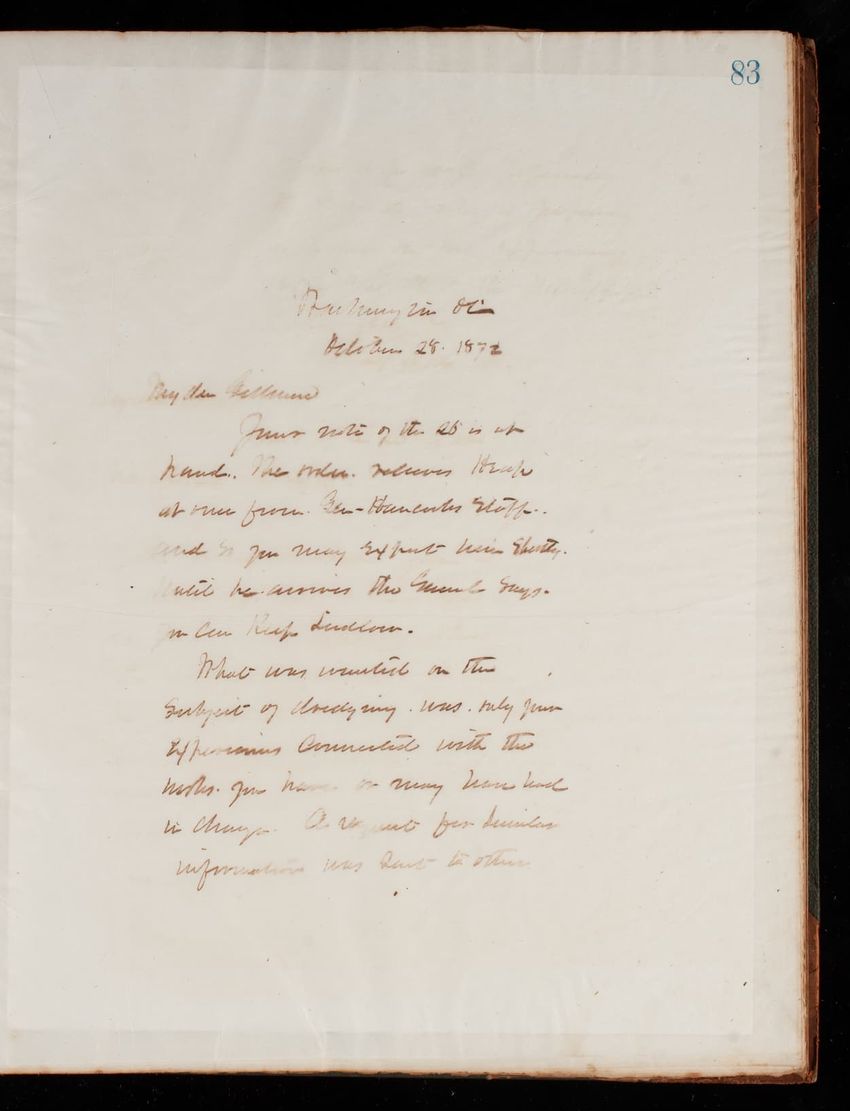 83
Washington DC
October 28. 1872
My dear Gillmore
Your note of the 26 is at
hand. The order. relieves Heap
at once from. Gen-Hancocks Staff.
and So you may Expect him Shortly.
Until he arrives the General Says.
you can Keep Ludlow.
What was wanted on the
Subject of dredging. was. only your
Experiences Connected with the
works. you have or may have had
in charge. A request for Similar
information was Sent to other